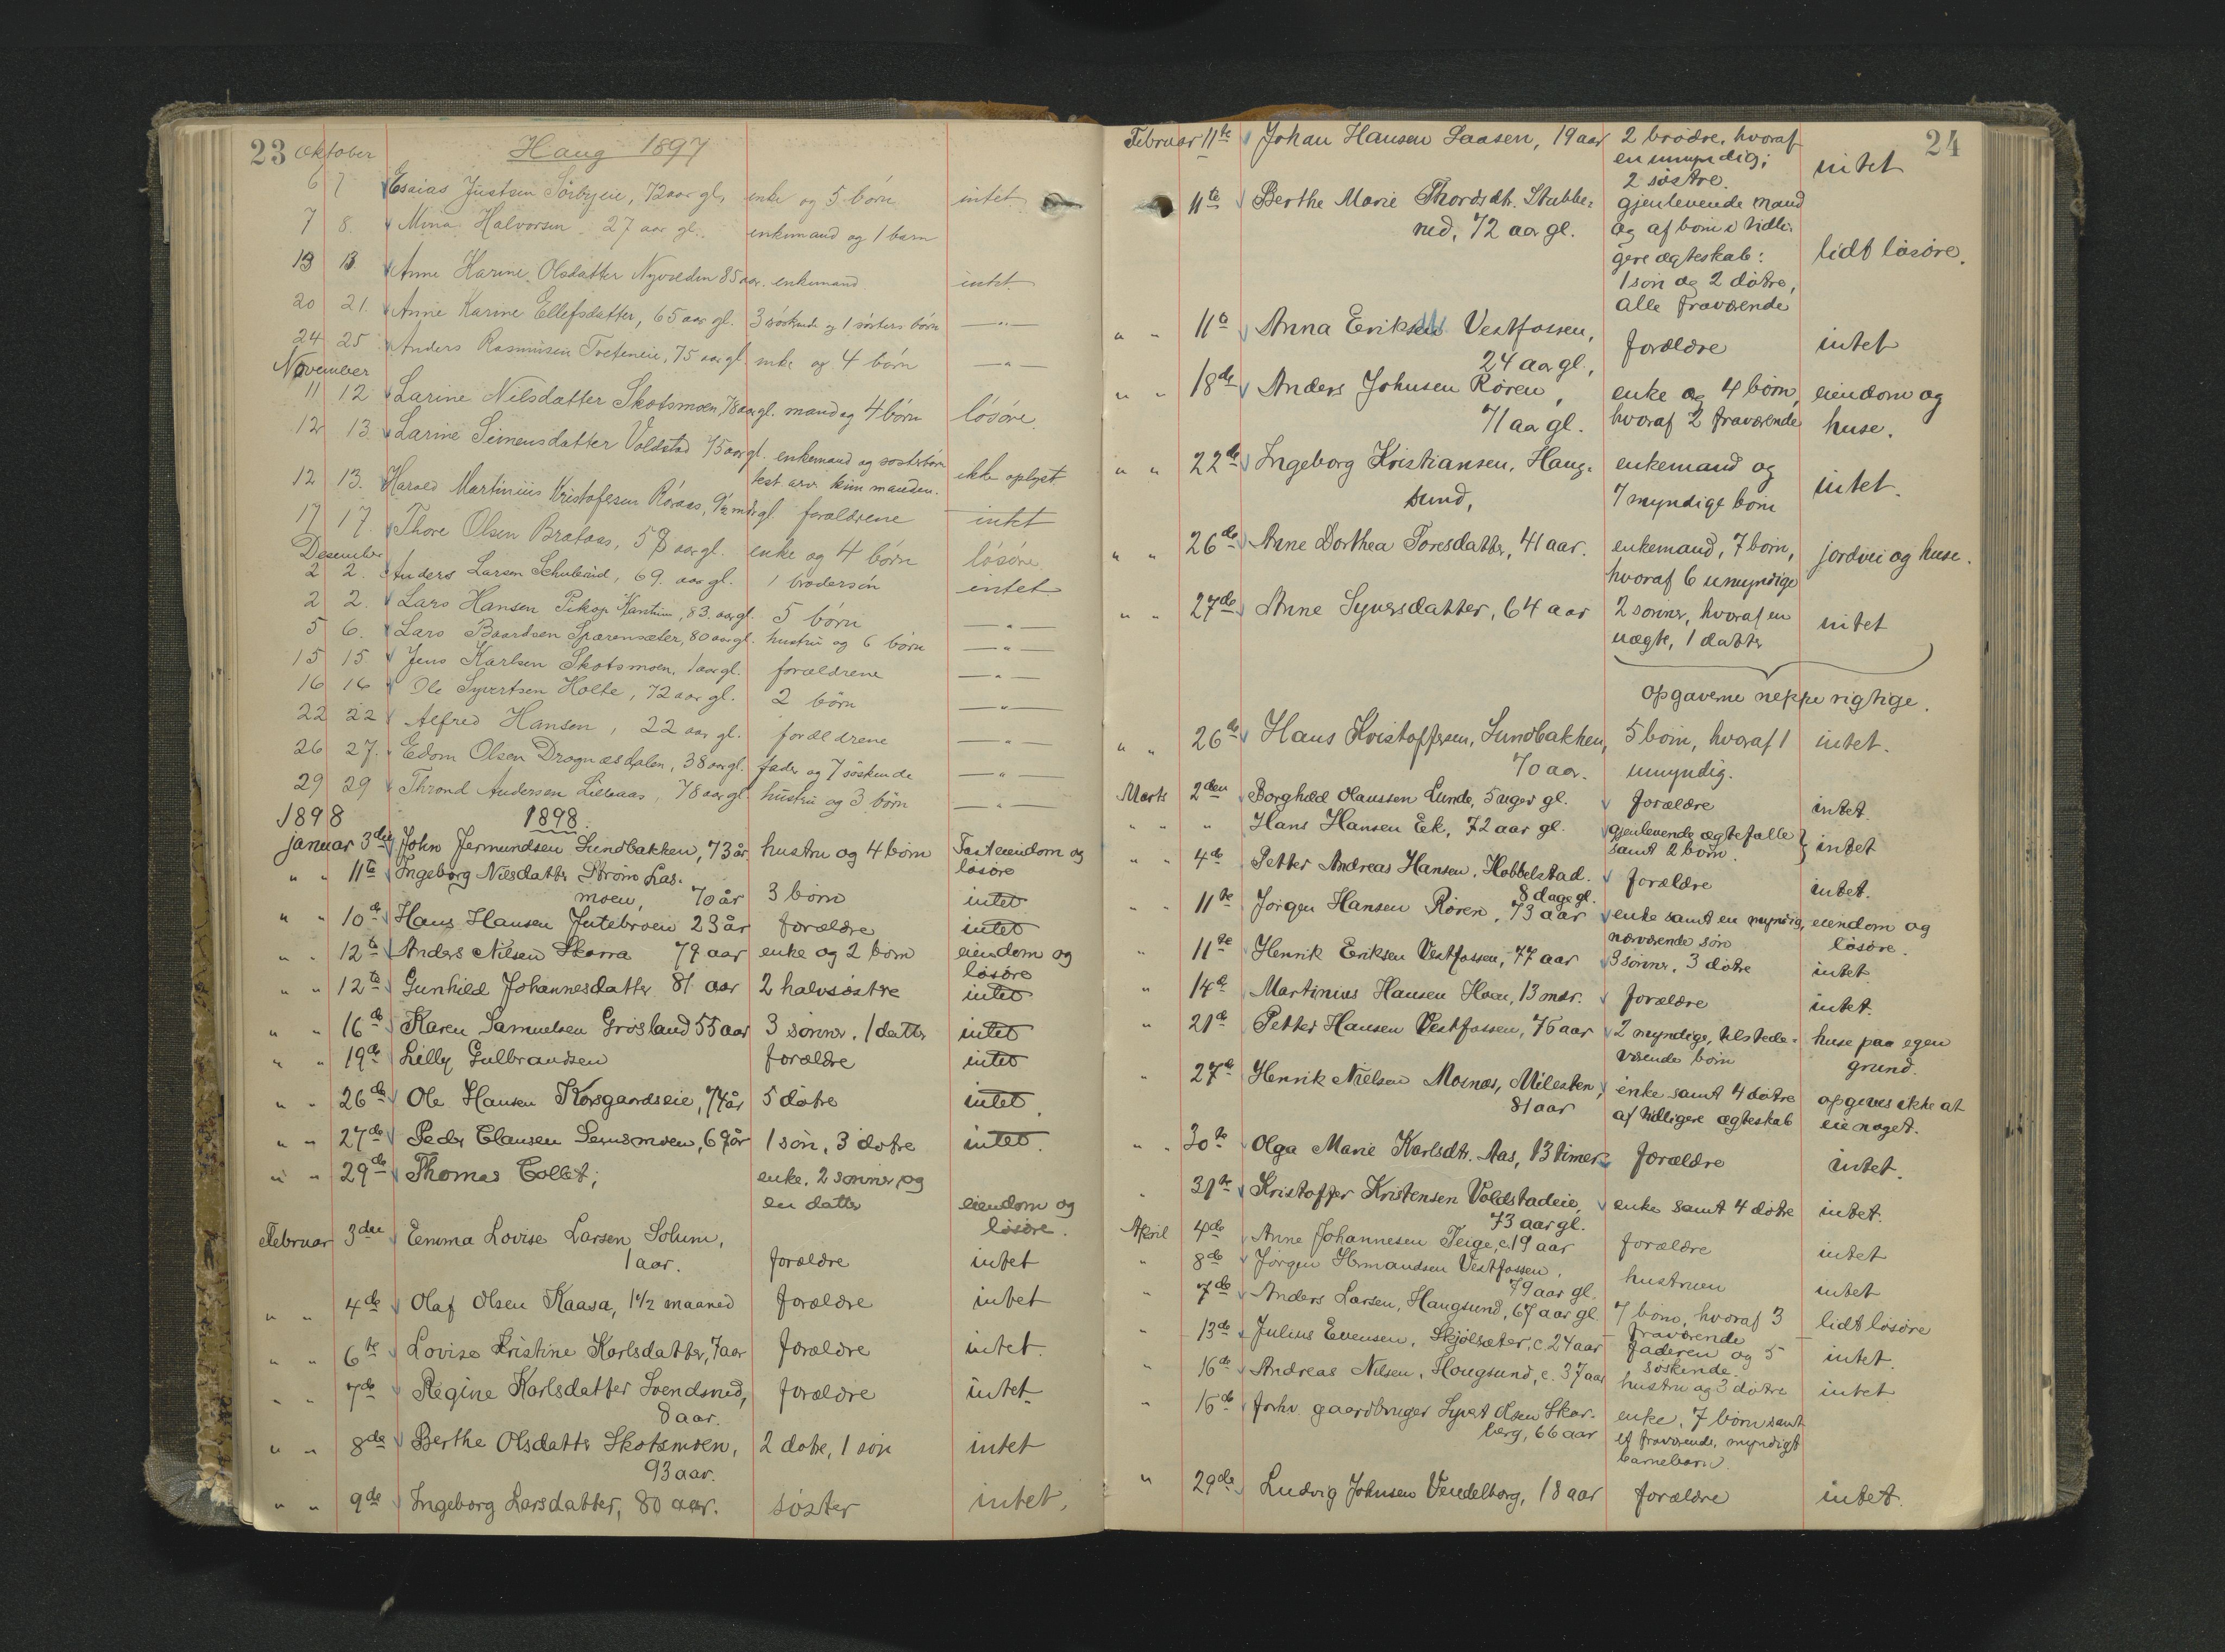 23 Oktober Haug 1897
6 7 Esaias Justsen Sörbyeie, 72 aar gl, enke og 5 börn intet
7 8. Mina Halvorsen 27 aar gl. enkemand og 1 barn
13 13 Anne Karine Olsdatter 85 aar. enkemand intet
20 21. Anne Karine Ellefsdatter, 65 aar gl. 3 söskende og 1 sösters börn — " —
24 25 Anders Rasmusen Tveteneie, 75 aar gl. enke og 4 börn — " —
November
11 12 Larine Nilsdatter Skotsmoen, 78 aar gl. mand og 4 börn lösöre.
12 13 Larine Simensdatter Voldstad 75 aar gl. enkemand og sösterbörn
test arv. kun manden. ikke oplyst
12 13. Harald Martinius Kristofersen Röraas, 9½ mdr gl. forældrene intet
17 17. Thore Olsen Brataas, 58 aar gl. enke og 4 börn lösöre
Desember
2 2. Anders Larsen Schulerud, 69. aar gl. 1 brodersön intet
2 2. Lars Hansen Pikop 83. aar gl. 5 börn — " —
5 6. Lars Baardsen Sparensæter, 80 aar gl. hustru og 6 börn — " —
15 15 Jens Karlsen Skotsmoen, 1 aar gl. forældrene — " —
16 16 Ole Syvertsen Holte, 72 aar gl. 2 börn — " —
22 22 Alfred Hansen, 22 aar gl. forældrene — " —
26 27. Edom Olsen Drognæsdalen, 38 aar gl. fader og 7 söskende — " —
29 29 Thrond Andersen Lilleaas, 78 aar gl. hustru og 3 börn — " —
1898 1898.
januar 3die John Jermundsen Lundbakken, 73 år, hustru og 4 börn Fast eiendom og
lösöre
" " 11te Ingeborg Nilsdatter Ström Las-
moen, 70 år 3 börn intet
" " 10de Hans Hansen Jutebroen 23 år forældre intet
" " 12te Anders Nilsen Skarra 79 aar enke og 2 börn eiendom og
lösöre
" " 12te Gunhild Johannesdatter 81 aar 2 halvsöstre intet
" " 16de Karen Samuelsen Grösland 55 aar 3 sönner, 1 datter intet
" " 19de Lilly Gulbrandsen forældre intet
" " 26de Ole Hansen Korsgaardseie, 74 år 5 döttre intet.
" " 27de Peder Clausen 69 år 1 sön, 3 döttre intet.
" " 29de Thomas Collet; enke, 2 sönner og
en datter eiendom og
lösöre.
Februar 3die Emma Lovise Larsen Solum,
1 aar. forældre intet
" " 4de Olaf Olsen Kaasa, 1½ maaned forældre intet
" " 6te Lovise Kristine Karlsdatter, 7 aar forældre intet.
" " 7de Regine Karlsdatter Svendsrud, forældre intet
8 aar.
" " 8de Berthe Olsdatter Skotsmoen, 2 dotre, 1 sön intet
93 aar.
" " 9de Ingeborg Larsdatter, 80 aar. söster intet.
24
Februar 11te Johan Hansen Laasen, 19 aar 2 brödre, hvoraf
en umyndig; intet
2 söstre.
11te Berthe Marie Thordsdt. Stubbe- gjenlevende mand
rud, 72 aar gl. og af börn i tidli-
gere ægteskab: lidt lösöre.
1 sön og 2 dötre,
alle fraværende
" " 11te Anna Eriksen Vestfossen, forældre intet
24 aar gl.,
" " 18de Anders Johnsen Rören, enke og 4 börn, eiendom og
71 aar gl. hvoraf 2 fraværende huse.
" " 22de Ingeborg Kristiansen, Haug- enkemand og
sund, 7 myndige börn intet.
" " 26de Anne Dorthea Toresdatter, 41 aar. enkemand, 7 börn, jordvei og huse.
hvoraf 6 umyndige
" " 27de Anne Syversdatter, 64 aar 2 sönner, hvoraf en intet
uægte, 1 datter
opgaverne neppe rigtige.
" " 26de Hans Kristoffersen, Sundbakken, 5 börn, hvoraf 1 intet.
70 aar. umyndig.
Marts 2den Borghild Olaussen Lunde, 5 uger gl. forældre intet.
" " " Hans Hansen Ek, 72 aar gl. gjenlevende ægtefælle
samt 2 börn. intet
" " 4de Petter Andreas Hansen, Hobbelstad. forældre intet.
8 dage gl.
" " 11te Jörgen Hansen Rören, 73 aar enke samt en myndig, eiendom og
nærværende sön lösöre.
" 11te Henrik Eriksen Vestfossen, 77 aar 3 sönner, 3 dötre intet.
" 14de Martinius Hansen Hoen, 13 mdr. forældre intet.
" 21de Petter Hansen Vestfossen, 76 aar 2 myndige, tilstede- huse paa egen
værende börn grund.
" 27de Henrik Nielsen Moenæs, Milesten, enke samt 4 döttre opgives ikke at
81 aar af tidligere ægteskab eie noget.
" " 30te Olga Marie Karlsdtr. Aas, 13 timer forældre intet.
" 31te Kristoffer Kristensen Voldstadeie, enke samt 4 dötre intet.
73 aar gl.
April 4de Anne Johannesen Teige, c. 19 aar forældre intet
" 8de Jörgen Hermandsen Vestfossen, hustruen intet
79 aar gl.
" 7de Anders Larsen, Haugsund, 67 aar gl. 7 börn, hvoraf 3 lidt lösöre
fraværende
" 13de Julius Evensen, Skjölsæter, c. 24 aar faderen og 5 intet.
söskende.
" 16de Andreas Nilsen, Hougsund, c. 37 aar hustru og 3 döttre intet
" 16de Forhv. gaardbruger Syvert Olsen Skar- enke, 7 börn samt
berg, 66 aar et fraværende, myndigt
barnebarn.
" 29de Ludvig Johnsen Vendelborg, 18 aar forældre intet.